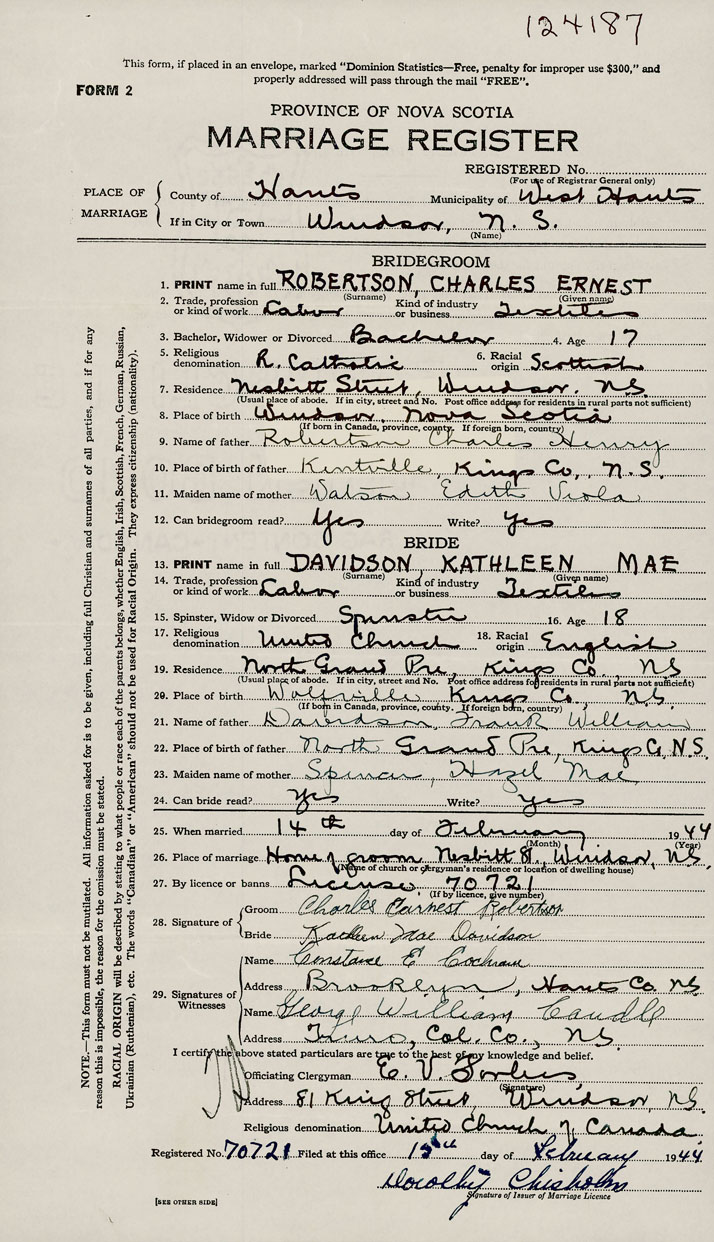 124187
This form, if placed in an envelope, marked "Dominion Statistics—Free, penalty for improper use $300," and
properly addressed will pass through the mail "FREE".
FORM 2
PROVINCE OF NOVA SCOTIA
MARRIAGE REGISTER
REGISTERED No.
(For use of Registrar General only)
PLACE OF MARRIAGE
County of Hants Municipality of West Hants
If in City or Town Windsor, N. S.
(Name)
BRIDEGROOM
1. PRINT name in full ROBERTSON, CHARLES ERNEST
(Surname) (Given name)
2. Trade, profession or kind of work Labor Kind of industry or business Textiles
3. Bachelor, Widower or Divorced Bachelor 4. Age 17
5. Religious denomination R. Catholic 6. Racial origin Scottish
7. Residence Nesbitt Street, Windsor, N.S.
(Usual place of abode. If in city, street and No. Post office address for residents in rural parts not sufficient)
8. Place of birth Windsor, Nova Scotia
(If born in Canada, province, county. If foreign born, country)
9. Name of father Robertson Charles Henry
10. Place of birth of father Kentville, Kings Co., N.S.
11. Maiden name of mother Watson Edith Viola
12. Can bridegroom read? Yes Write? Yes
BRIDE
13. PRINT name in full DAVIDSON, KATHLEEN MAE
(Surname) (Given name)
14. Trade, profession or kind of work Labor Kind of industry or business Textiles
15. Spinster, Widow or Divorced Spinster 16. Age 18
17. Religious denomination United Church 18. Racial origin English
19. Residence North Grand Pre, Kings Co., NS
(Usual place of abode. If in city, street and No. Post office address for residents in rural parts not sufficient)
20. Place of birth Wolfville Kings Co., N.S.
(If born in Canada, province, county. If foreign born, country)
21. Name of father Davidson, Frank William
22. Place of birth of father North Grand Pre, Kings Co, N.S.
23. Maiden name of mother Spencer, Hazel Mae
24. Can bride read? Yes Write? Yes
25. When married 14th day of February 1944
(Month) (Year)
26. Place of marriage Home of groom Nesbitt St., Windsor, NS.
(Name of church or clergyman's residence or location of dwelling house)
27. By licence or banns License 70721
(If by licence, give number)
28. Signature of
Groom Charles Earnest Robertson
Bride Kathleen Mae Davidson
29. Signatures of Witnesses
Name Constance E Cochran
Address Brooklyn, Hants Co. NS
Name George William Caudle
Address Truro, Col. Co., NS.
I certify the above stated particulars are true to the best of my knowledge and belief.
Officiating Clergyman E. V. Forbes
(Signature)
Address 81 King Street, Windsor, NS.
Religious denomination United Church of Canada
Registered No. 70721 Filed at this office 15th day of February 1944
Dorothy Chisholm
Signature of Issuer of Marriage Licence
[SEE OTHER SIDE]
NOTE.—This form must not be mutilated. All information asked for is to be given, including full Christian and surnames of all parties, and if for any
reason this is impossible, the reason for the omission must be stated.
RACIAL ORIGIN will be described by stating to what people or race each of the parents belongs, whether English, Irish, Scottish, French, German, Russian,
Ukrainian (Ruthenian), etc. The words "Canadian" or "American" should not be used for Racial Origin. They express citizenship (nationality).